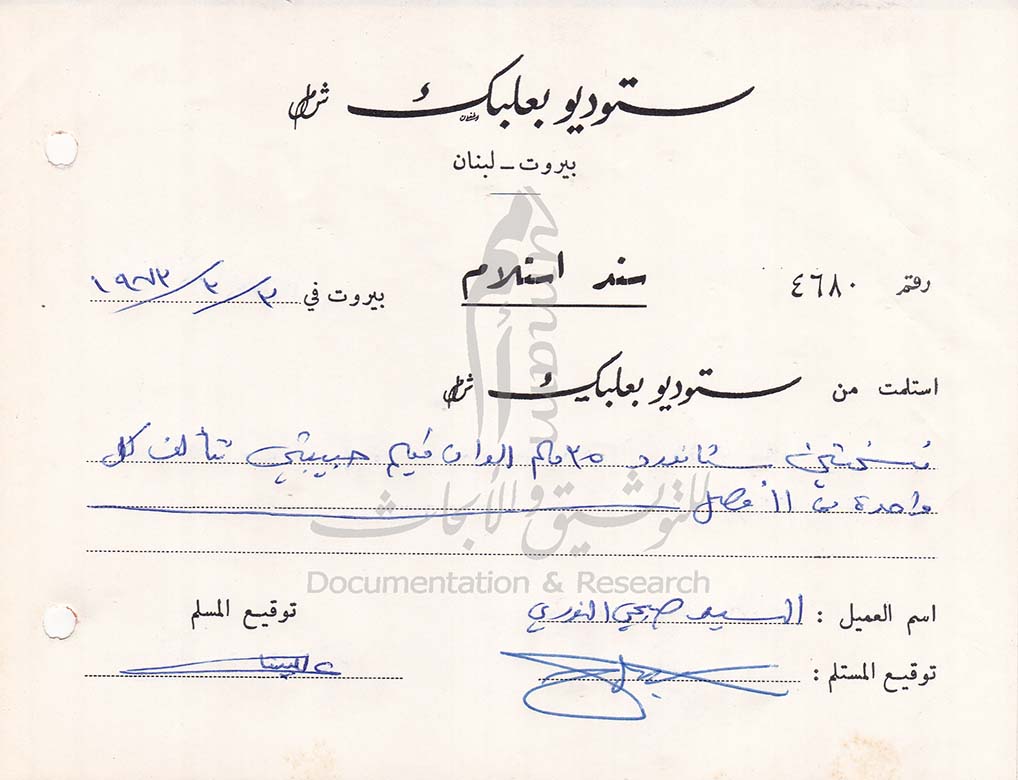 ستوديو بعلبك شمل
بيروت - لبنان
رقم ٤٦٨٠
سند استلام
بيروت في ٣ / ٣ / ١٩٧٣
استلمت من ستوديو بعلبك شمل
نسختين ستاندرد ٣٥ ملم الوان فيلم حبيبتي تتألف كل
واحدة من ١١ فصل
للتوثيق والأبحاث
Documentation & Research
اسم العميل : السيد صبحي النوري
توقيع المسلم
توقيع المستلم :